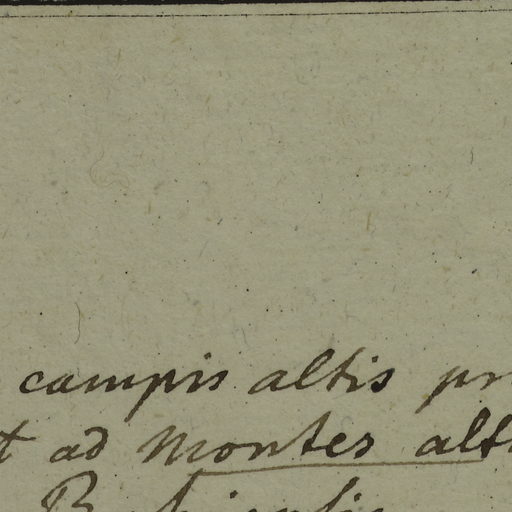 campis altis pr
t ad montes alt